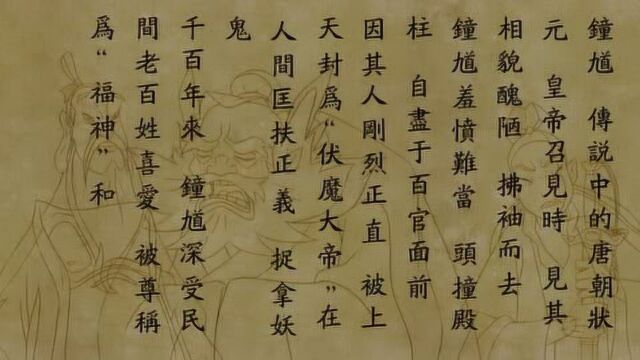 鐘馗 傳説中的唐朝狀
元 皇帝召見時 見其
相貌醜陋 拂袖而去
鐘馗羞憤難當 頭撞殿
柱 自盡于百官面前
因其人剛烈正直 被上
天封爲“伏魔大帝”在
人間匡扶正義 捉拿妖
鬼
千百年來 鐘馗深受民
間老百姓喜愛 被尊稱
爲“福神”和